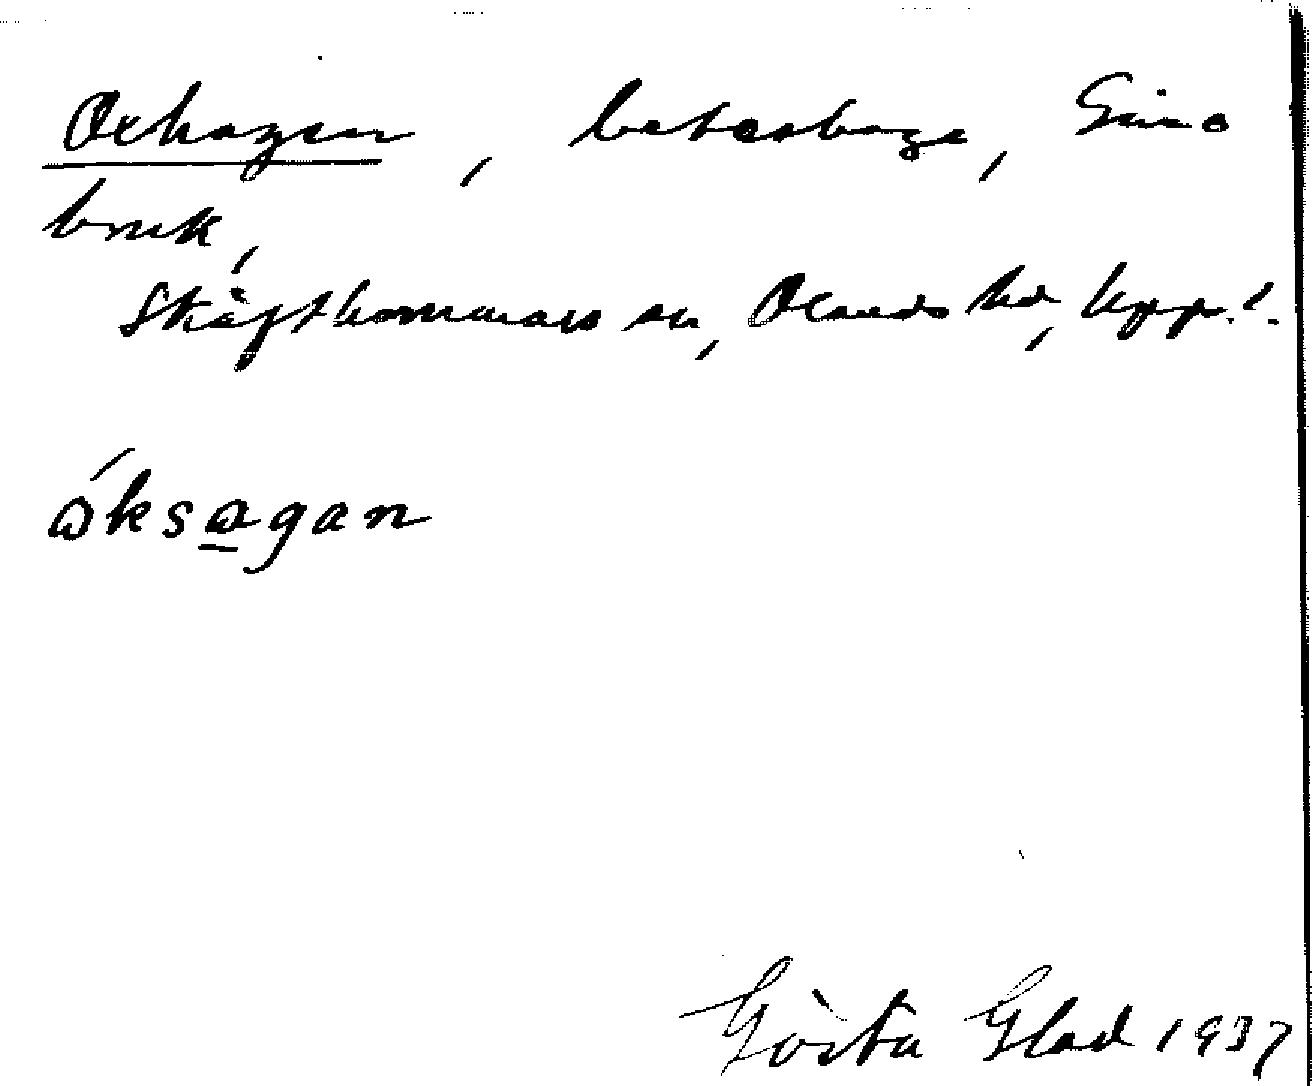 Oxhagen, beteshage, Gimo
bruk,
Skäfthammars sn, Olands hd, Uppl.
òksagan
Gösta Glad 1937